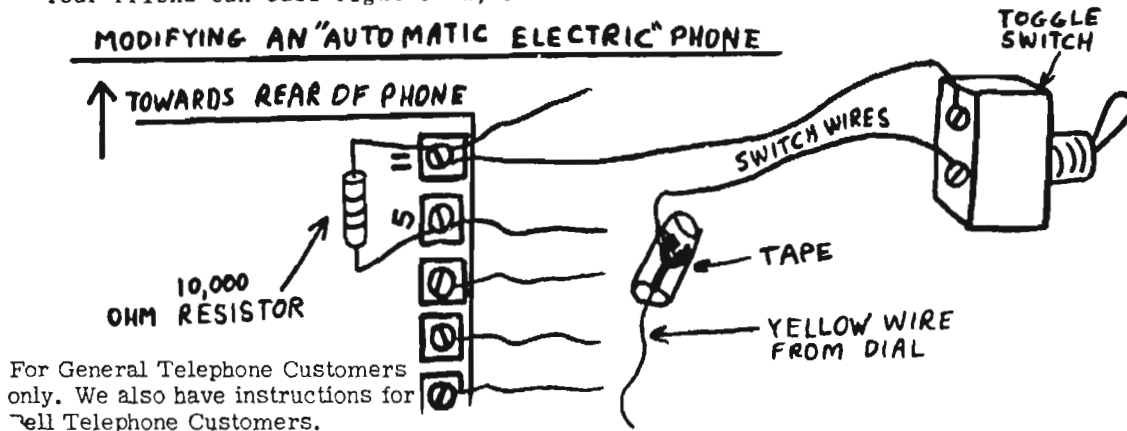 Your friend can call right
MODIFYING AN "AUTOMATIC ELECTRIC" PHONE
TOGGLE
SWITCH
TOWARDS REAR OF PHONE
11
SWITCH WIRES
5
TAPE
10,000
OHM RESISTOR
YELLOW WIRE
FROM DIAL
For General Telephone Customers
only. We also have instructions for
Bell Telephone Customers.